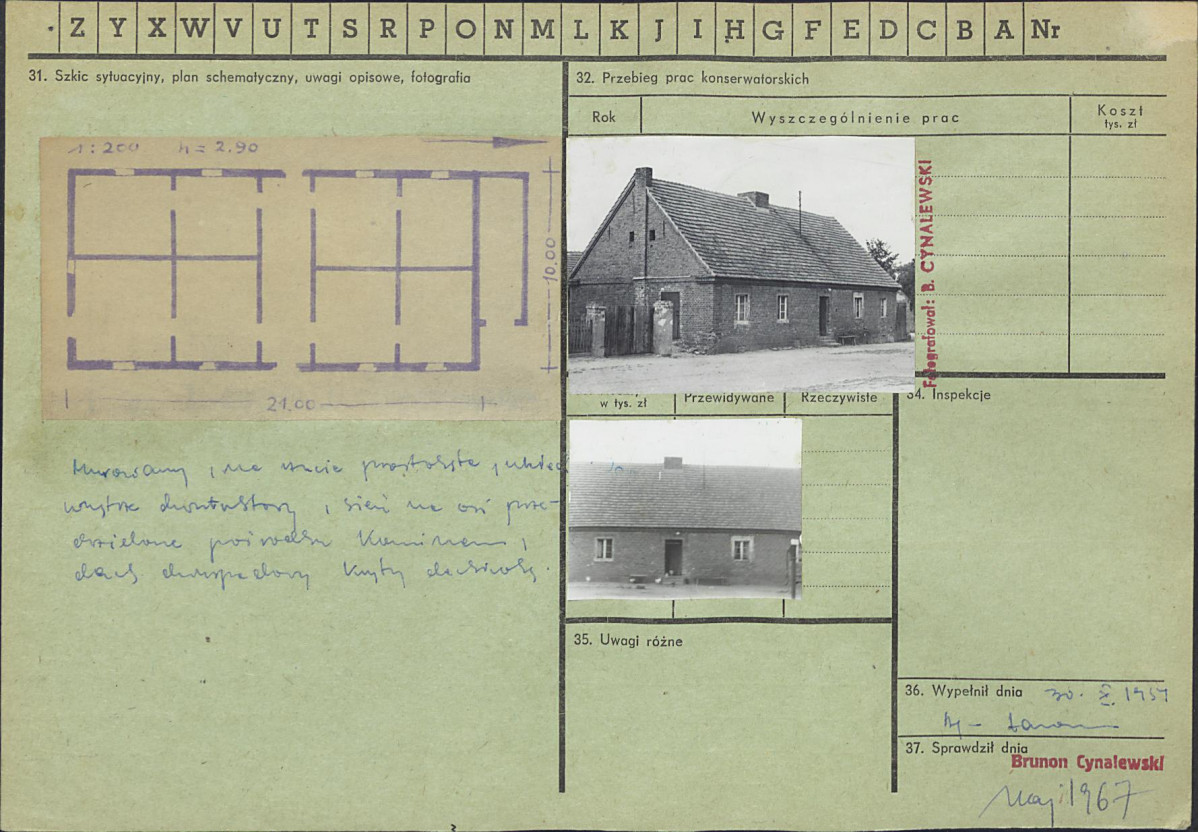 Z Y X W V U T S R P O N M L K J I H G F E D C B A Nr
31. Szkic sytuacyjny, plan schematyczny, uwagi opisowe, fotografia
1:200 h = 2.90
10.00
21.00
Murowany, na rzucie prostokąta, układ
wnętrz dwutraktowy, sień na osi prze-
dzielona pośrodku kominem,
dach dwuspadowy kryty dachówką.
32. Przebieg prac konserwatorskich
Rok Wyszczególnienie prac Koszt
tys. zł
Fotografował: B. CYNALEWSKI
w tys. zł Przewidywane Rzeczywiste
34. Inspekcje
35. Uwagi różne
36. Wypełnił dnia 30. X. 1959
37. Sprawdził dnia
Brunon Cynalewski
Maj 1967